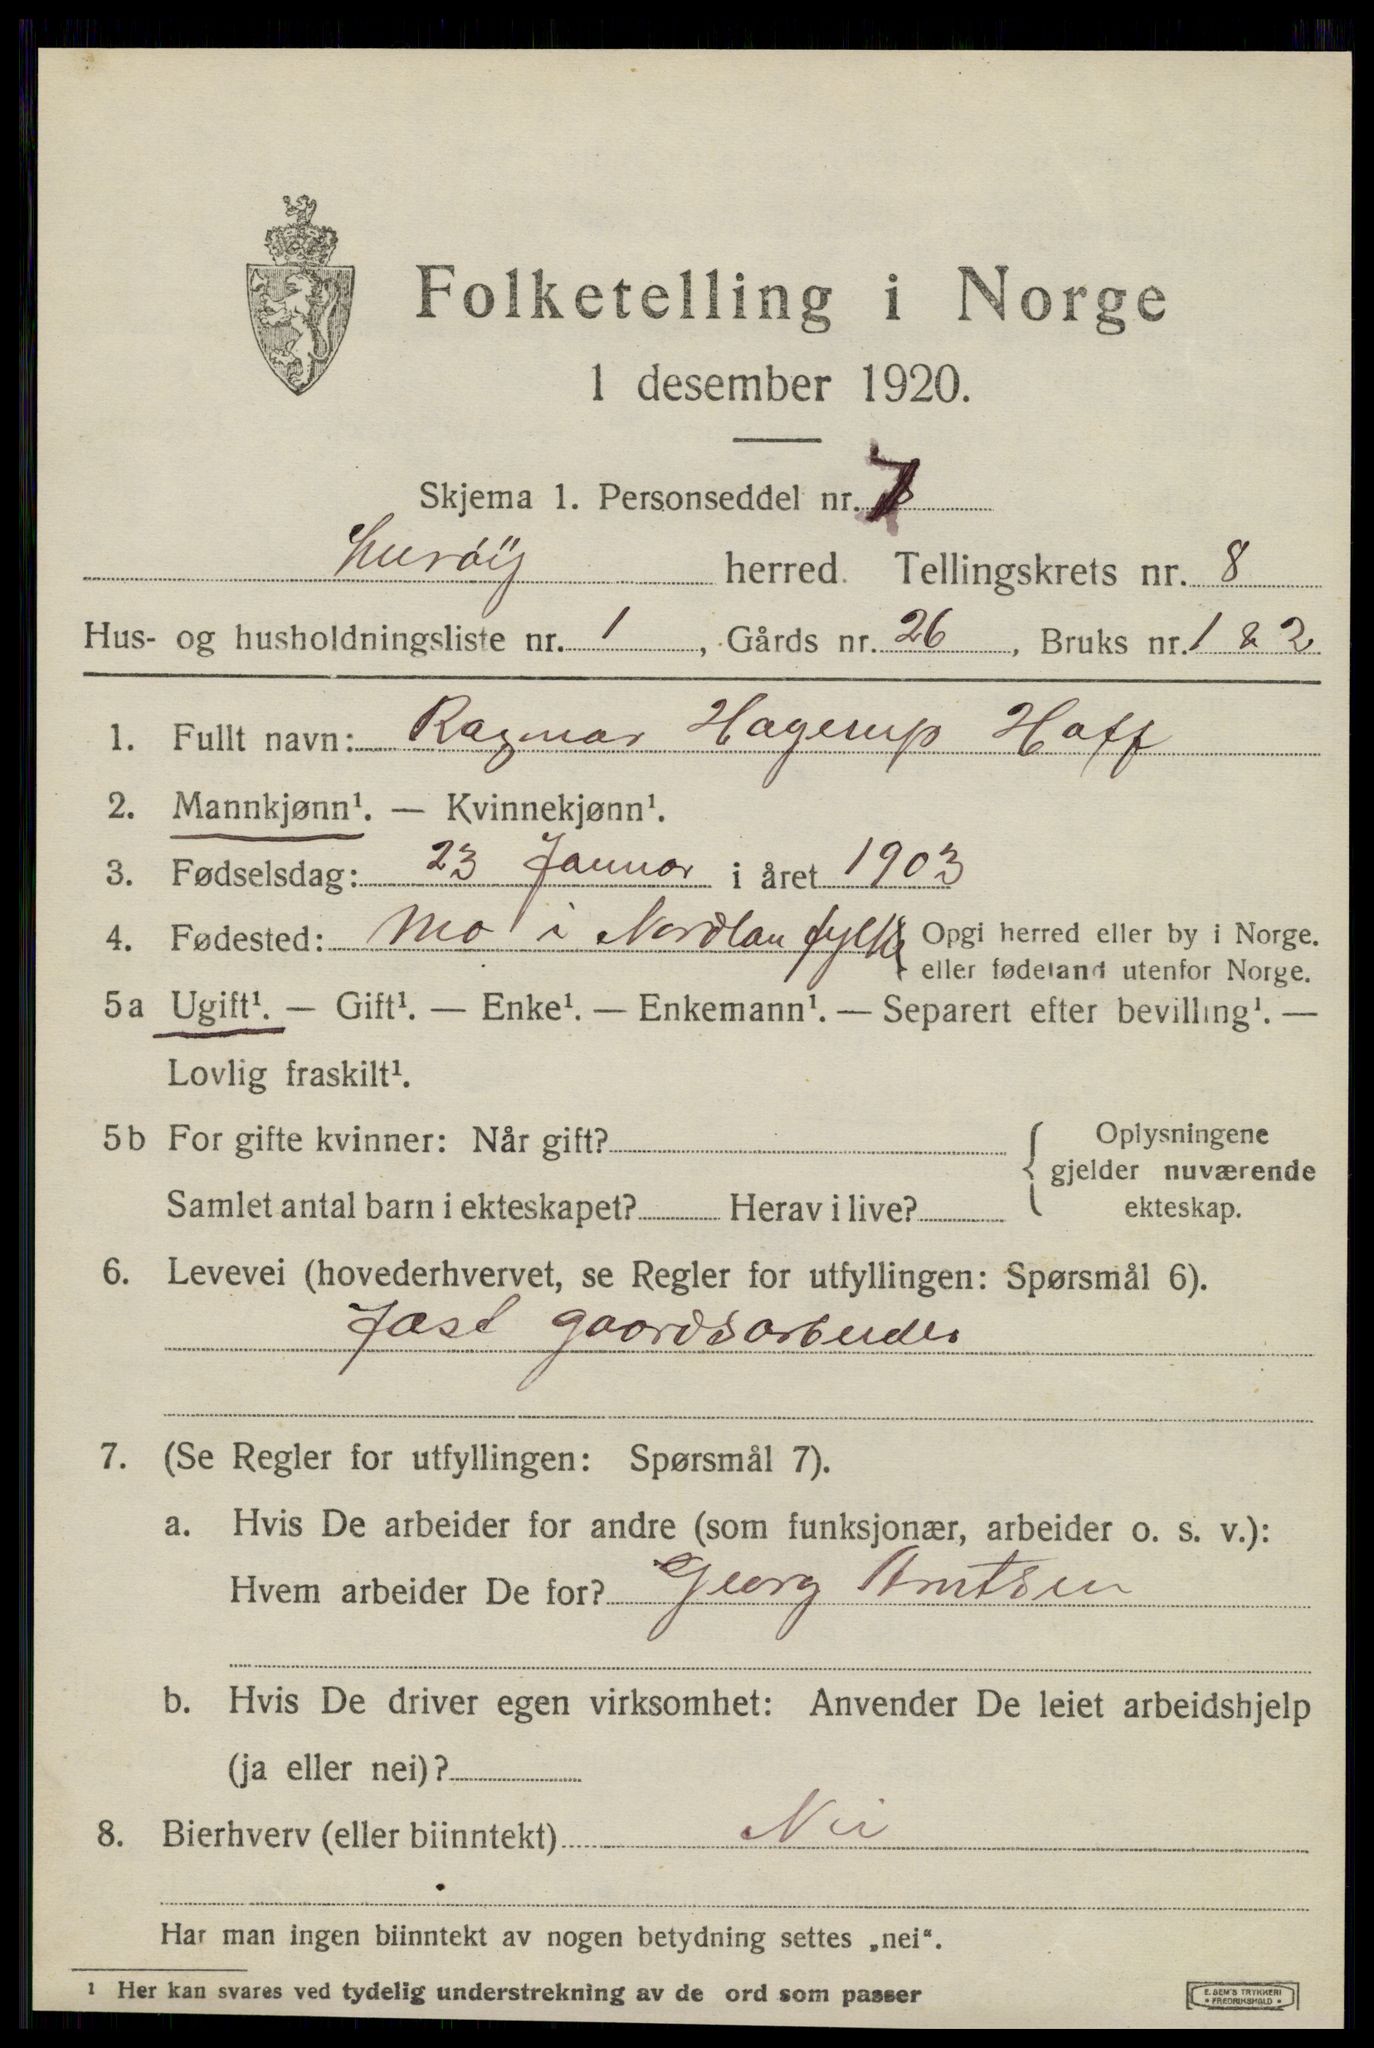 Folketelling i Norge
1 desember 1920.
Skjema 1. Personseddel nr. 7
Lurøy herred. Tellingskrets nr. 8
Hus- og husholdningsliste nr. 1, Gårds nr. 26, Bruks nr. 1 & 2
1. Fullt navn: Ragnar Hagerup Hoff
2. Mannkjønn¹. — Kvinnekjønn¹.
3. Fødselsdag: 23 Januar i året 1903
4. Fødested: Mo i Nordlan fylke { Opgi herred eller by i Norge.
eller fødeland utenfor Norge.
5a Ugift¹. — Gift¹. — Enke¹. — Enkemann¹. — Separert efter bevilling¹. —
Lovlig fraskilt¹.
5b For gifte kvinner: Når gift? { Oplysningene
gjelder nuværende
Samlet antal barn i ekteskapet? Herav i live? ekteskap.
6. Levevei (hovederhvervet, se Regler for utfyllingen: Spørsmål 6).
Fast gaardsarbeider
7. (Se Regler for utfyllingen: Spørsmål 7).
a. Hvis De arbeider for andre (som funksjonær, arbeider o. s. v.):
Hvem arbeider De for? Georg Arntsen
b. Hvis De driver egen virksomhet: Anvender De leiet arbeidshjelp
(ja eller nei)?
8. Bierhverv (eller biinntekt) Nei
Har man ingen biinntekt av nogen betydning settes „nei“.
¹ Her kan svares ved tydelig understrekning av de ord som passer
E. SEM'S TRYKKERI
• FREDRIKSHALD •